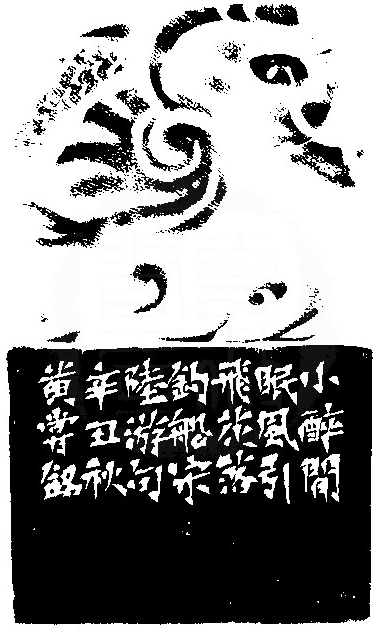 小醉閒
眠風引
飛花落
釣船宋
陸游句
辛丑秋
黃嘗銘